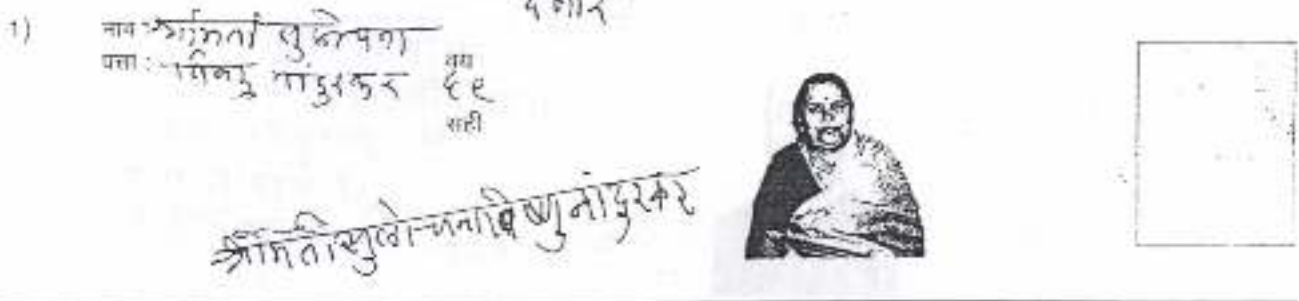 देणार
1) नाव : श्रीमती सुलोचना
पत्ता : विष्णु नांदुरकर वय
६९
सही
श्रीमती सुलोचना विष्णु नांदुरकर